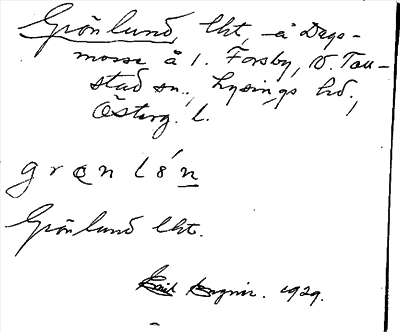 Grönlund, lht, å Dags-
mosse å 1. Forsby, V. Tol-
stad sn., Lysings hd.,
Österg. l.
grønlǿn
Grönlund lht.
1929.